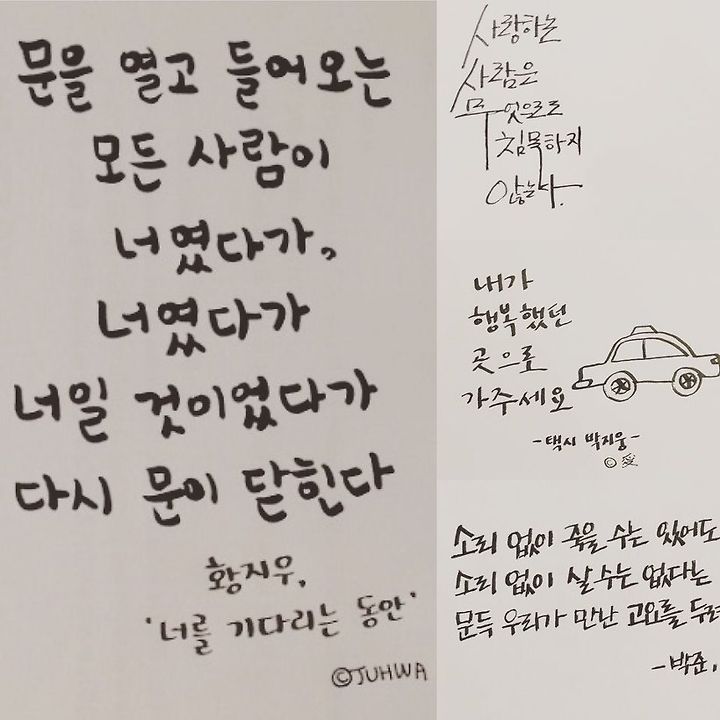 문을 열고 들어오는
모든 사람이
너였다가,
너였다가
너일 것이었다가
다시 문이 닫힌다
황지우,
'너를 기다리는 동안'
©JUHWA
사랑하는
사람은
무엇으로도
침묵하지
않는다.
내가
행복했던
곳으로
가주세요
-택시 박지웅-
©愛
소리 없이 죽을 수는 있어도
소리 없이 살 수는 없다는
문득 우리가 만난 고요를 두려
-박준,